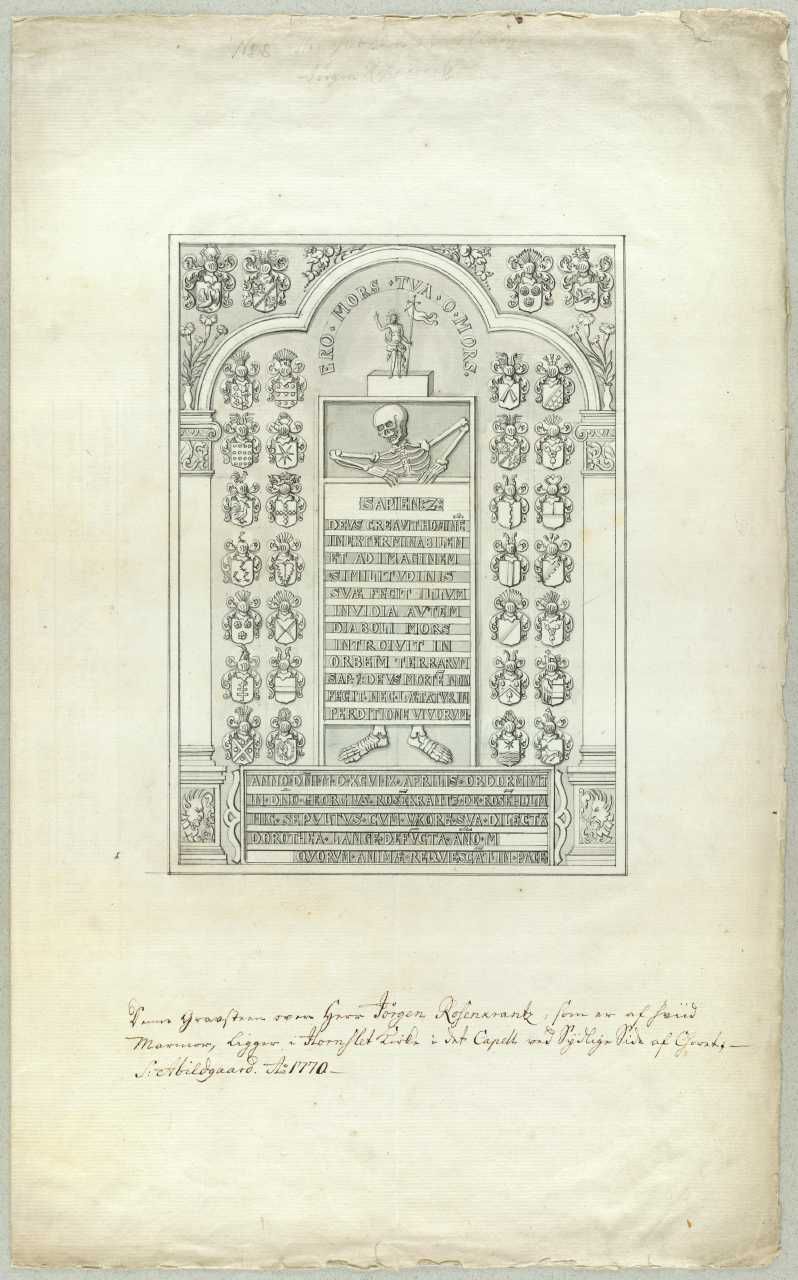 ERO · MORS · TVA · O · MORS.
SAPIEN: 2:
DEVS CREAVIT HOMINĒ
INEXTERMINABILEM
ET AD IMAGINEM
SIMILITVDINIS
SVÆ FECIT ILLVM
INVIDIA AVTEM
DIABOLI MORS
INTROIVIT IN
ORBEM TERRARVM
SAP: DEVS MORTĒ NON
FECIT · NEC · LÆTATVR IN
PERDITIONE VIVORVM
ANNO · DÑI · M · D · XCVI · IX · APRILIS · OBDORMIVIT
IN · DÑO · GEORGIVS · ROSENKRANTZ · DE · ROSE
HIC · SEPVLTVS · CVM · VXORE · SVA · DILECTA
DOROTHEA · LANGE · DEFVCTA · AÑO · M
QVORVM · ANIMÆ · REQVIESCAT · IN · PACE
Denne Gravsteen over Herr Jörgen Rosenkrantz, som er af hviid
Marmor, ligger i Hornslet Kirke i det Capell ved Sydlige Side af Choret. —
S: Abildgaard. Ao 1770 —